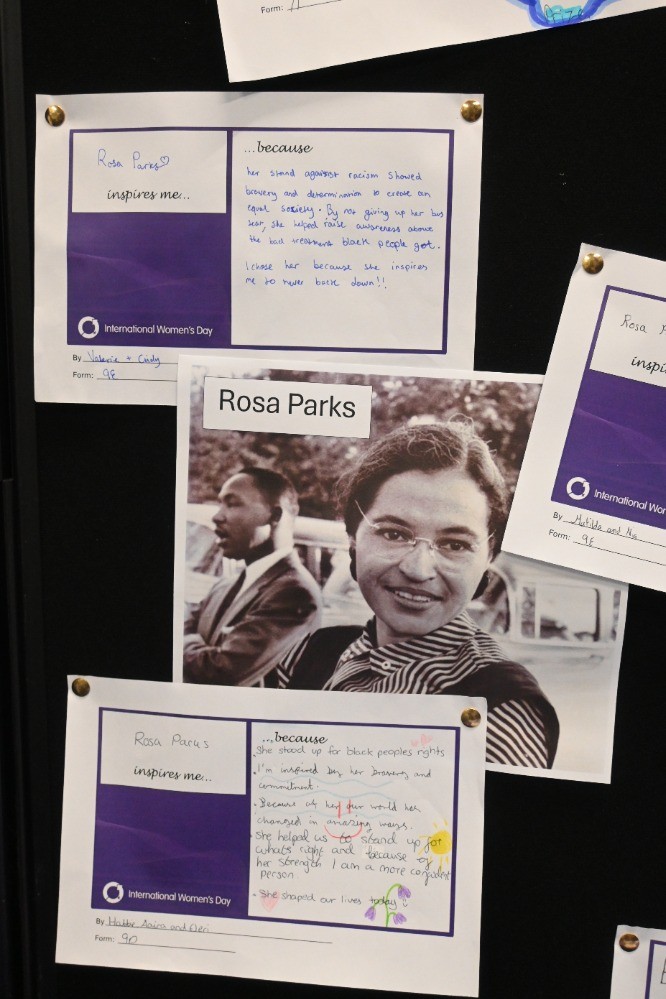 Form:
Rosa Parks♡
inspires me...
International Women's Day
...because
her stand against racism showed
bravery and determination to create an
equal society. By not giving up her bus
seat, she helped raise awareness about
the bad treatment black people got.
I chose her because she inspires
me to never back down!!
By Valerie + Cindy
Form: 9E
Rosa
inspi
International Wo
By Matilda and
Form: 9E
Rosa Parks
Rosa Parks
inspires me...
International Women's Day
...because
• She stood up for black peoples rights
• I'm inspired by her bravery and
commitment.
• Because of her our world has
changed in amazing ways.
• She helped us to stand up for
whats right and because of
her strength I am a more confident
person
- She shaped our lives today
By and
Form: 9D